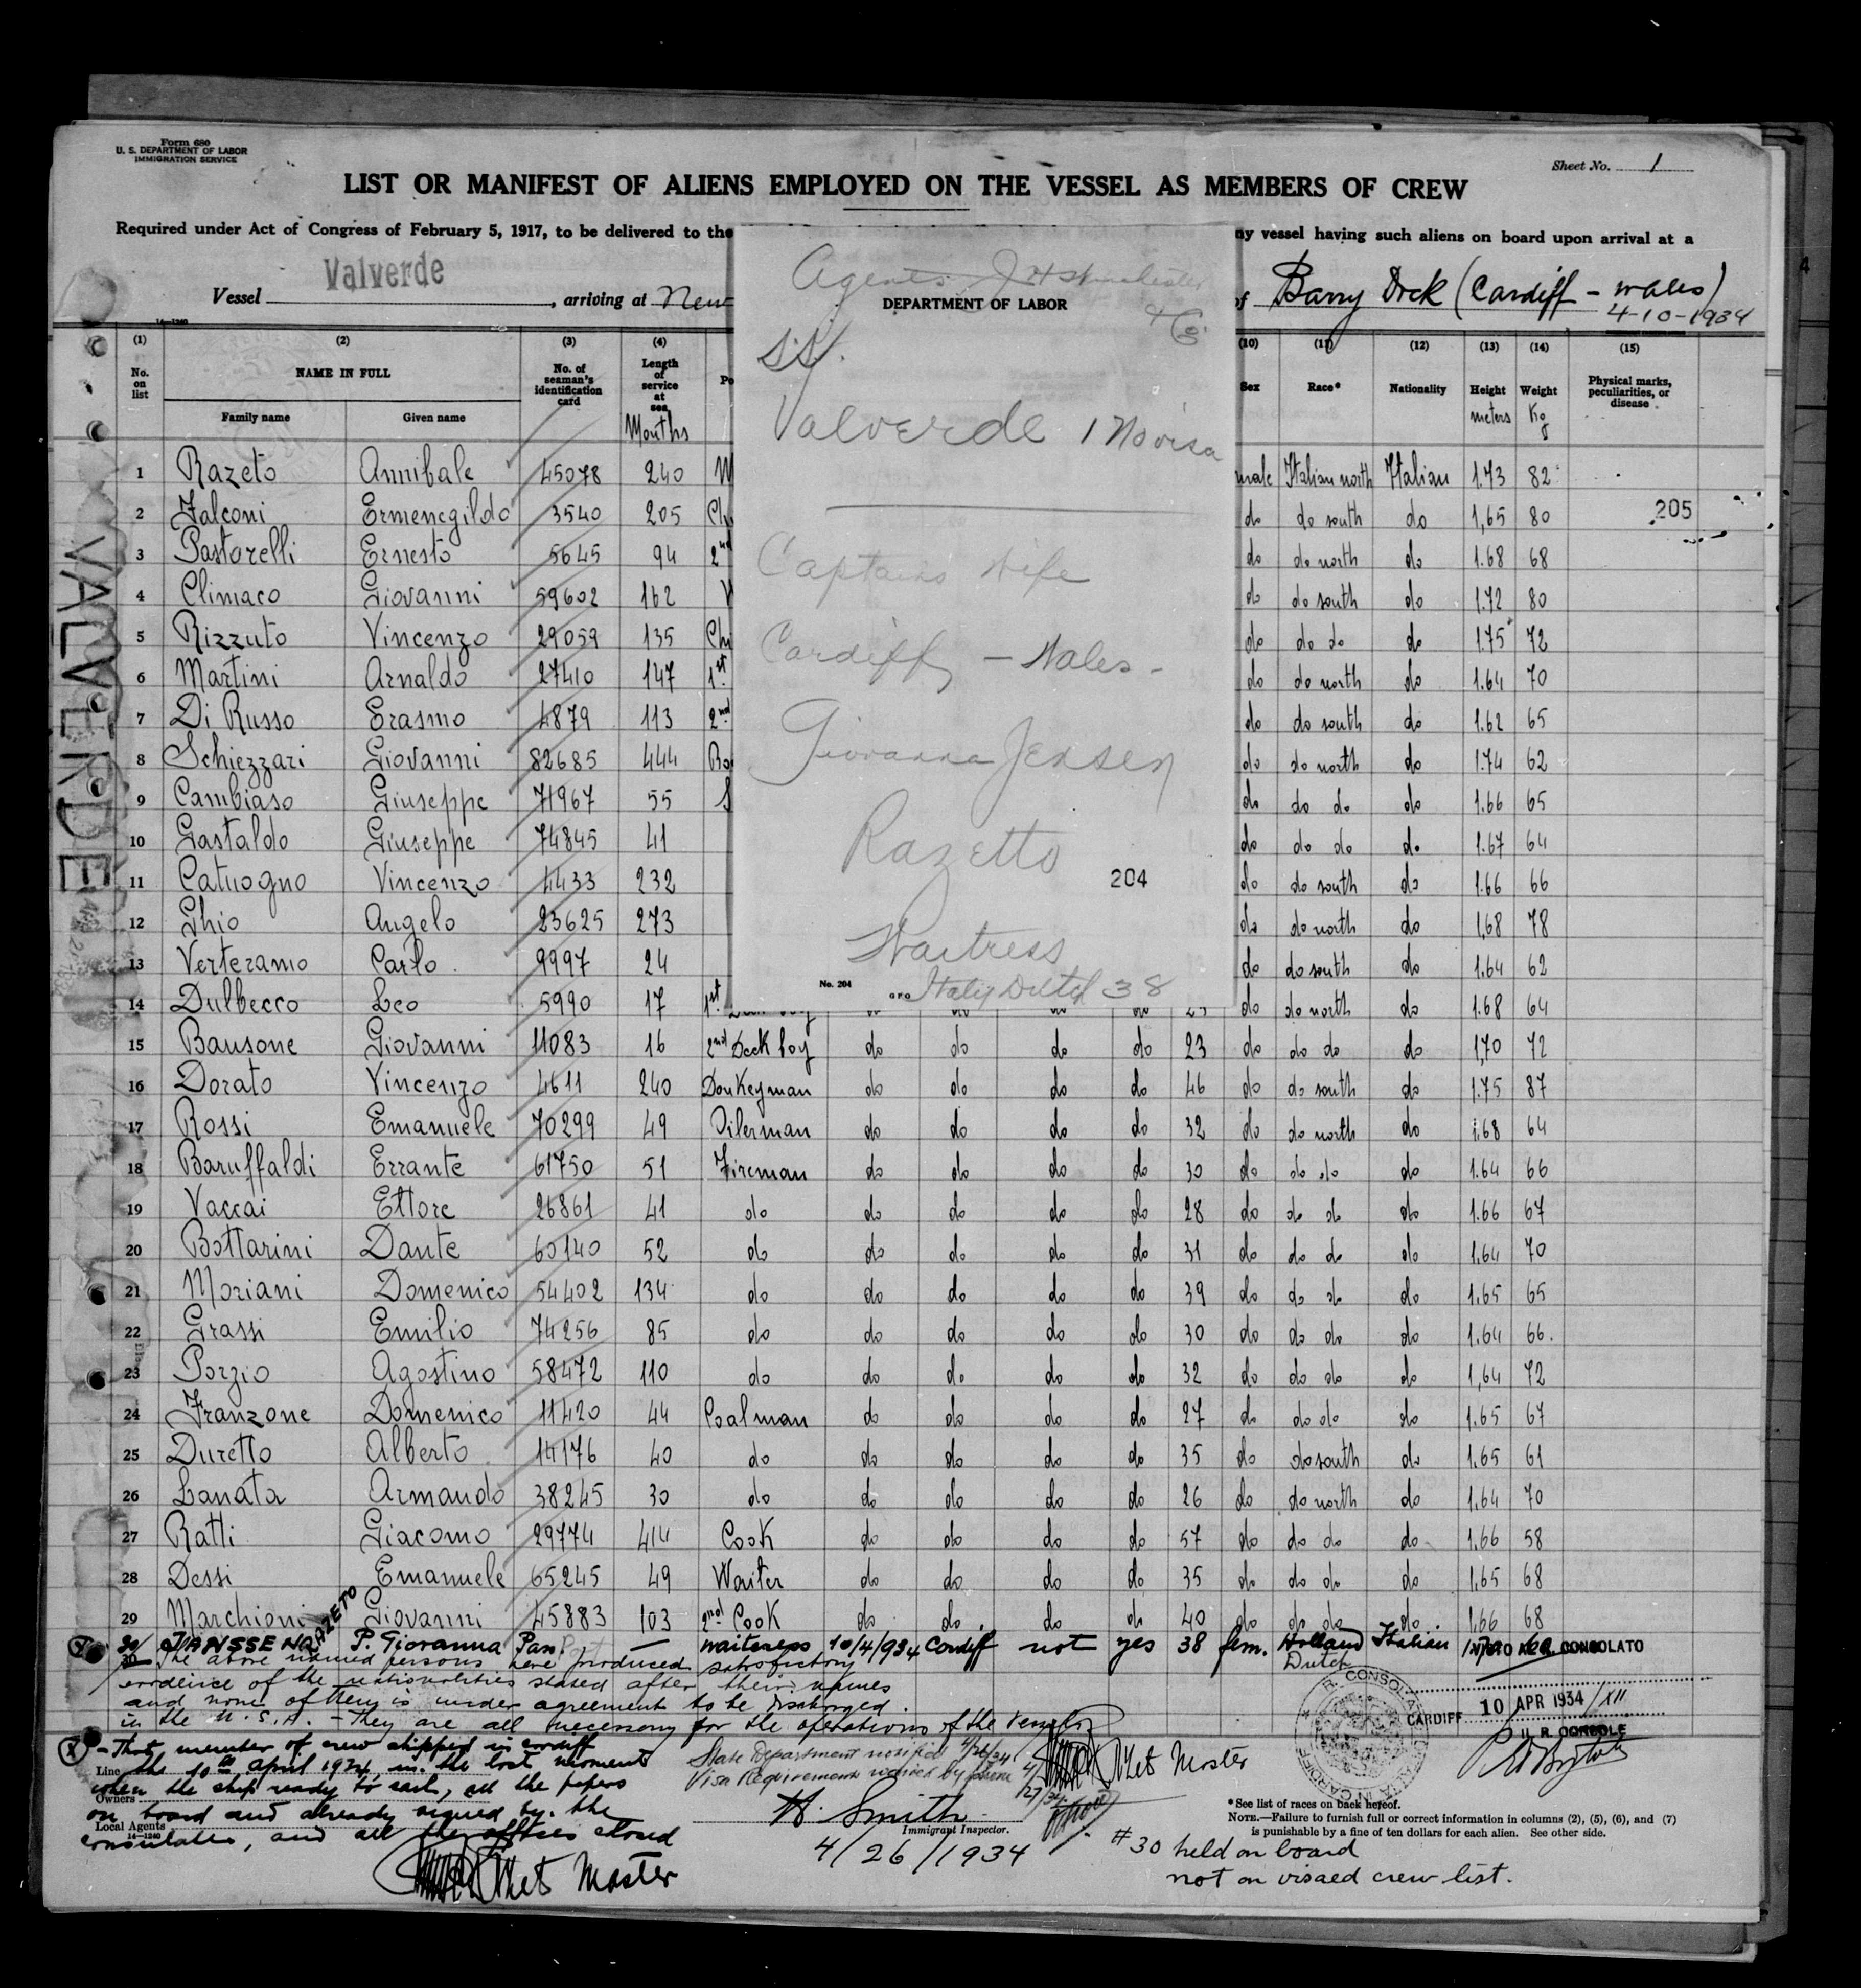 Form 680
U. S. DEPARTMENT OF LABOR
IMMIGRATION SERVICE
Sheet No. 1
LIST OR MANIFEST OF ALIENS EMPLOYED ON THE VESSEL AS MEMBERS OF CREW
Required under Act of Congress of February 5, 1917, to be delivered to the
ny vessel having such aliens on board upon arrival at a
Vessel Valverde, arriving at New
of Barry Dock (Cardiff - Wales)
4-10-1934
14-1240
(1) (2) (3) (4) (10) (11) (12) (13) (14) (15)
No. on list NAME IN FULL No. of seaman's identification card Length of service at sea Po Sex Race* Nationality Height Weight Physical marks, peculiarities, or disease
Family name Given name Months meters Kg
1 Razeto Annibale 45078 240 M male Italian north Italian 1.73 82
2 Falconi Ermenegildo 3540 205 Ch do do south do 1,65 80 205
3 Pastorelli Ernesto 5645 94 2nd do do north do 1.68 68
4 Climaco Giovanni 59602 162 do do south do 1.72 80
5 Rizzuto Vincenzo 29059 135 Chi do do do do 1.75 72
6 Martini Arnaldo 27410 147 1st do do north do 1.64 70
7 Di Russo Erasmo 4879 113 2nd do do south do 1.62 65
8 Schiezzari Giovanni 82685 444 Bo do do north do 1.74 62
9 Cambiaso Giuseppe 71967 55 S do do do do 1.66 65
10 Gastaldo Giuseppe 74845 41 do do do do 1.67 64
11 Catuogno Vincenzo 4433 232 do do south do 1.66 66
12 Ghio Angelo 23625 273 do do north do 1,68 78
13 Verteramo Carlo 9997 24 do do south do 1.64 62
14 Dulbecco Leo 5990 17 1st do do north do 1.68 64
15 Bausone Giovanni 11083 16 2nd Deck boy do do do do 23 do do do do 1,70 72
16 Dorato Vincenzo 4611 240 Donkeyman do do do do 46 do do south do 1.75 87
17 Rossi Emanuele 70299 49 Oilerman do do do do 32 do do north do 1.68 64
18 Baruffaldi Errante 61750 51 Fireman do do do do 30 do do do do 1.64 66
19 Vaccai Ettore 26861 41 do do do do do 28 do do do do 1.66 67
20 Bottarini Dante 60140 52 do do do do do 31 do do do do 1.64 70
21 Moriani Domenico 54402 134 do do do do do 39 do do do do 1.65 65
22 Grassi Emilio 74256 85 do do do do do 30 do do do do 1.64 66.
23 Porzio Agostino 58472 110 do do do do do 32 do do do do 1,64 72
24 Franzone Domenico 11420 44 Coalman do do do do 27 do do do do 1.65 67
25 Duretto Alberto 14176 40 do do do do do 35 do do south do 1.65 61
26 Lanata Armando 38245 30 do do do do do 26 do do north do 1.64 70
27 Ratti Giacomo 29774 414 Cook do do do do 57 do do do do 1.66 58
28 Dessi Emanuele 65245 49 Waiter do do do do 35 do do do do 1,65 68
29 Marchioni Giovanni 45883 103 2nd Cook do do do do 40 do do do do 1,66 68
(X) 30 JANSSEN RAZETO P. Giovanna — waitress 10/4/934 Cardiff not yes 38 fem. Holland Dutch Italian
30 The above named persons have produced satisfactory
evidence of the nationalities stated after their names
and none of them is under agreement to be discharged
in the U.S.A. - They are all necessary for the operations of the vessel
(X) - That member of crew shipped in Cardiff
the 10th April 1934 in the last moment
when the ship ready to sail, all the papers
on board and already signed by the
consulates, and all the offices closed
Master
Line
Owners
Local Agents
14-1240
State Department notified 4/26/34
Visa Requirements waived by phone 4/27/34
Master
H. Smith
Immigrant Inspector.
4/26/1934
VISTO CONSOLATO
R. CONSOLATO
CARDIFF 10 APR 1934/XII
IL R. CONSOLE
*See list of races on back hereof.
NOTE.—Failure to furnish full or correct information in columns (2), (5), (6), and (7)
is punishable by a fine of ten dollars for each alien. See other side.
#30 held on board
not on visaed crew list.
VALVERDE
Agents J H Winchester
& Co.
DEPARTMENT OF LABOR
S.S.
Valverde 1 No visa
Captains Wife
Cardiff - Wales -
Giovanna Jensen
Razetto
204
Waitress
No. 204
GPO
Italy Dutch 38